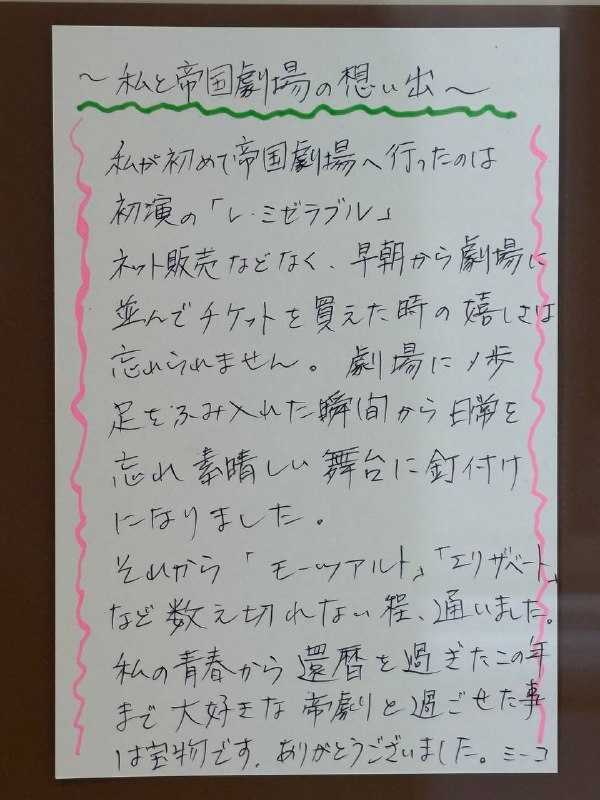 ～私と帝国劇場の想い出～
私が初めて帝国劇場へ行ったのは
初演の「レ・ミゼラブル」
ネット販売などなく、早朝から劇場に
並んでチケットを買えた時の嬉しさは
忘れられません。劇場に1歩
足をふみ入れた瞬間から日常を
忘れ素晴しい舞台に釘付け
になりました。
それから「モーツアルト」「エリザベート」
など数え切れない程、通いました。
私の青春から還暦を過ぎたこの年
まで大好きな帝劇と過ごせた事
は宝物です。ありがとうございました。ミーコ